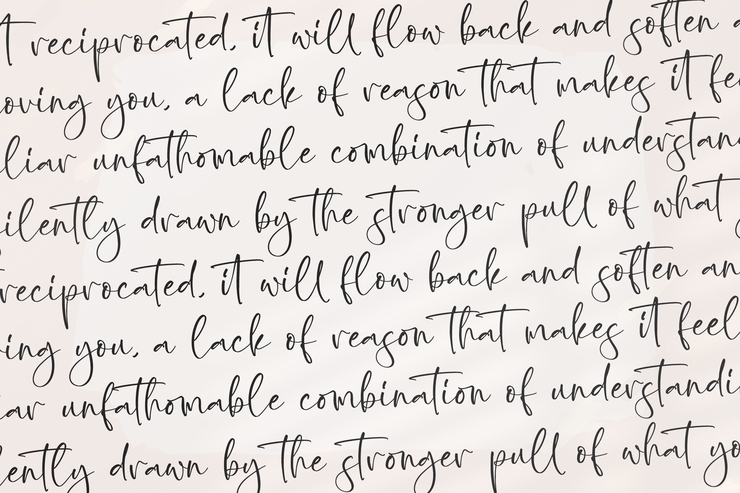 t reciprocated, it will flow back and soften a
oving you, a lack of reason that makes it fee
liar unfathomable combination of understand
ilently drawn by the stronger pull of what y
reciprocated, it will flow back and soften an
ing you, a lack of reason that makes it feel
iar unfathomable combination of understandi
lently drawn by the stronger pull of what yo